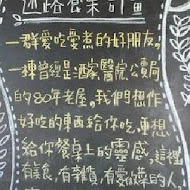 迷路食來可圖
一群愛吃愛煮的好朋友。
一棟曾經是酒家醫院公賣局
的80年老屋,我們想作
好吃的東西給你吃,更想
給你餐桌上的靈感,這裡
有美食,有雜貨,有愛做菜的人